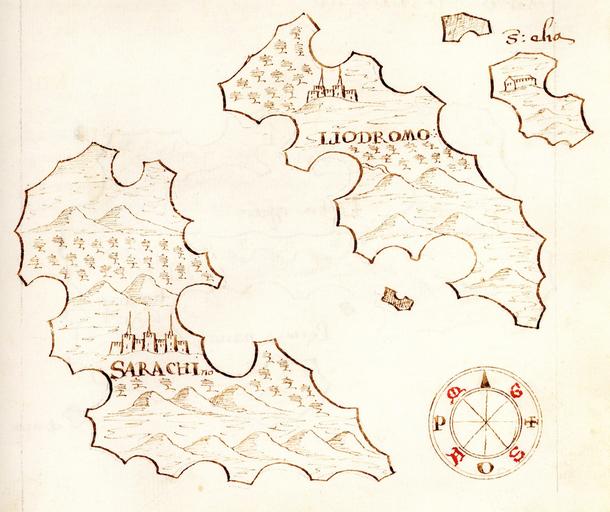 S: elia
LIODROMO
SARACHIno
G
P
S
O
A